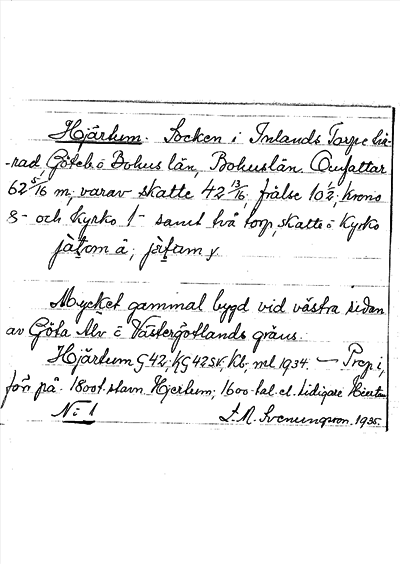 Hjärtum. Socken i Inlands Torpe hä-
-rad Göteb. o Bohus län, Bohuslän. Omfattar
62 5/16 m, varav skatte 42 13/16, frälse 10 1/2, krono
8- och Kyrko 1- samt två torp, skatte o Kyrko
jä̀tom å; jä̀tam y.
Mycket gammal bygd vid västra sidan
av Göta Älv o Västergötlands gräns.
Hjärtum G 42; KG 42 SK, Kb, ml 1934. — Prep i,
från på. 1800t. stavn. Hjertum; 1600-tal el. tidigare
No 1 L. M. Svenungsson. 1935.